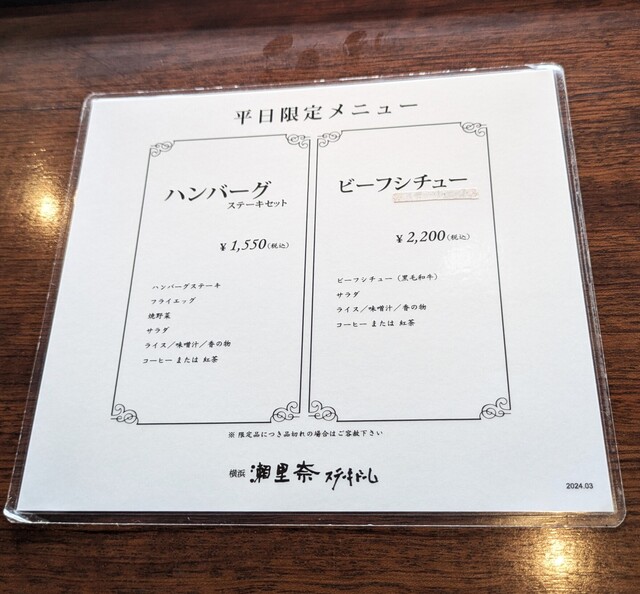 平日限定メニュー
ハンバーグ
ステーキセット
¥ 1,550(税込)
ハンバーグステーキ
フライエッグ
焼野菜
サラダ
ライス／味噌汁／香の物
コーヒー または 紅茶
ビーフシチュー
¥ 2,200(税込)
ビーフシチュー（黒毛和牛）
サラダ
ライス／味噌汁／香の物
コーヒー または 紅茶
※ 限定品につき品切れの場合はご容赦下さい
横浜 瀬里奈 ステーキドール
2024.03